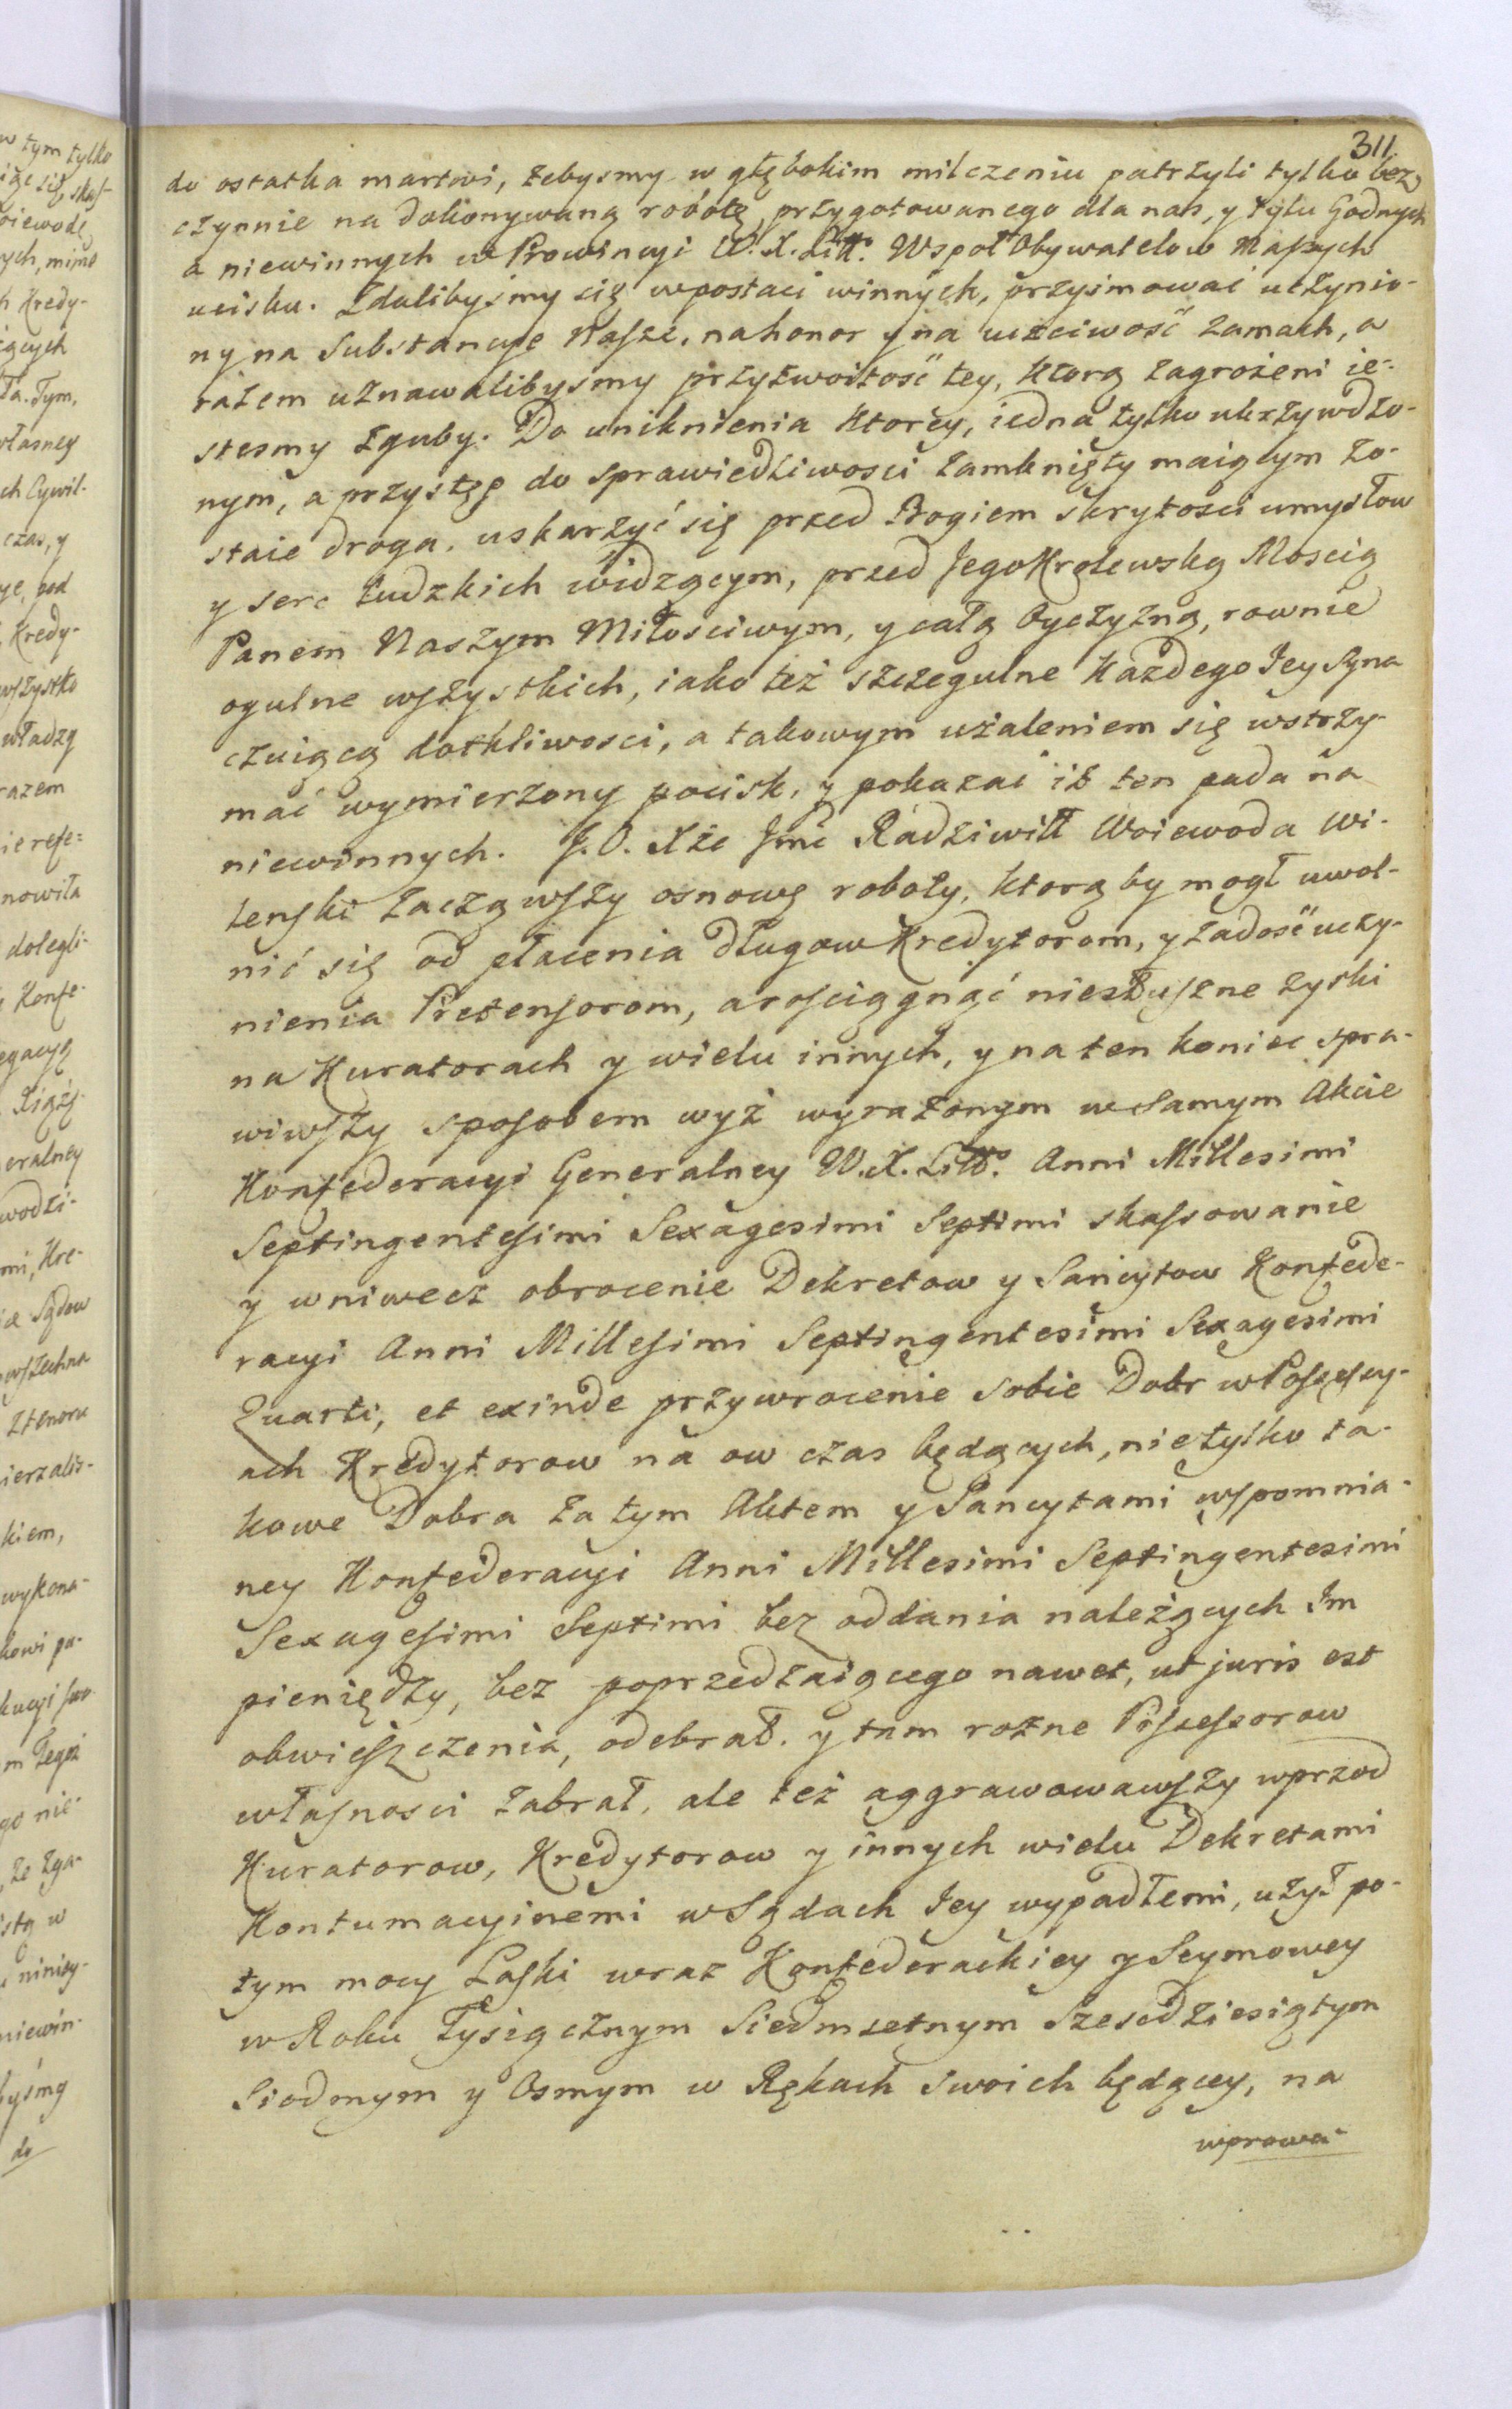 311.
do ostatka martwi, żebysmy w głębokim milczeniu patrzyli tylko bez-
czynnie na dokonywaną robotę, przygotowanego dla nas, y tylu Godnych
a niewinnych w Prowincyi W. X. Litt: Wspoł Obywatelow Naszych
ucisku. Zdalibyśmy się w postaci winnych, przyimować uczynio-
ny na Substancye Nasze, na honor y na uczciwość zamach, a
razem uznawalibysmy przyzwoitość tey, ktorą zagrożeni ie-
stesmy zguby. Do uniknienia ktorey, iedna tylko ukrzywdzo-
nym, a przystęp do sprawiedliwosci zamknięty maiącym zo-
staie droga, uskarżyć się przed Bogiem skrytości umysłow
y serc ludzkich widzącym, przed Jego Krolewską Moscią
Panem Naszym Miłosciwym, y całą Oyczyzną, rownie
ogulne wszystkich, iako też szczegulne każdego Jey Syna
czuiącą dotkliwosci, a takowym użaleniem się wstrzy-
mać wymierzony pocisk, y pokazać iż ten pada na
niewinnych. J. O. Xże Jmć Radziwiłł Woiewoda Wi-
lenski zacząwszy osnowę roboty, ktorąby mogł uwol-
nić się od płacenia długow Kredytorom, y zadość uczy-
nienia Pretensorom, a rosciągnąć niesłuszne zyski
na Kuratorach y wielu innych, y na ten koniec spra-
wiwszy sposobem wyż wyrażonym w samym Akcie
Konfederacyi Generalney W. X. Litt: Anni Millesimi
Septingentesimi Sexagesimi Septimi skassowanie
y wniwecz obrocenie Dekretow y Sancytow Konfede-
racyi Anni Millesimi Septingentesimi Sexagesimi
Quarti, et exinde przywrocenie sobie Dobr w Possessy-
ach Kredytorow na ow czas będących, nie tylko ta-
kowe Dobra za tym Aktem y Sancytami wspomnia-
ney Konfederacyi Anni Millesimi Septingentesimi
Sexagesimi Septimi bez oddania należących Im
pieniędzy, bez poprzedzaiącego nawet, ut juris est
obwieszczenia, odebrał. y tam rożne Possessorow
własnosci zabrał, ale też aggrawowawszy wprzod
Kuratorow, Kredytorow y innych wielu Dekretami
Kontumacyinemi w Sądach Jey wypadłemi, użył po-
tym mocy Laski wraz Konfederackiey y Seymowey
w Roku Tysiącznym Siedmsetnym Szescdziesiątym
Siodmym y Osmym w Rękach swoich będącey, na
wprowa-